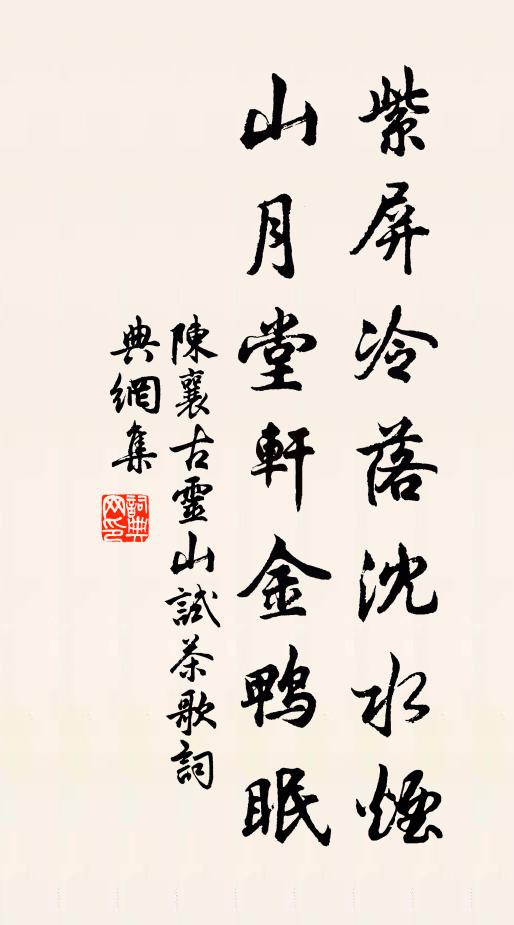 紫屏冷落沈水煙
山月堂軒金鴨眠
陳襄古靈山試茶歌詞
典網集
詞典網印